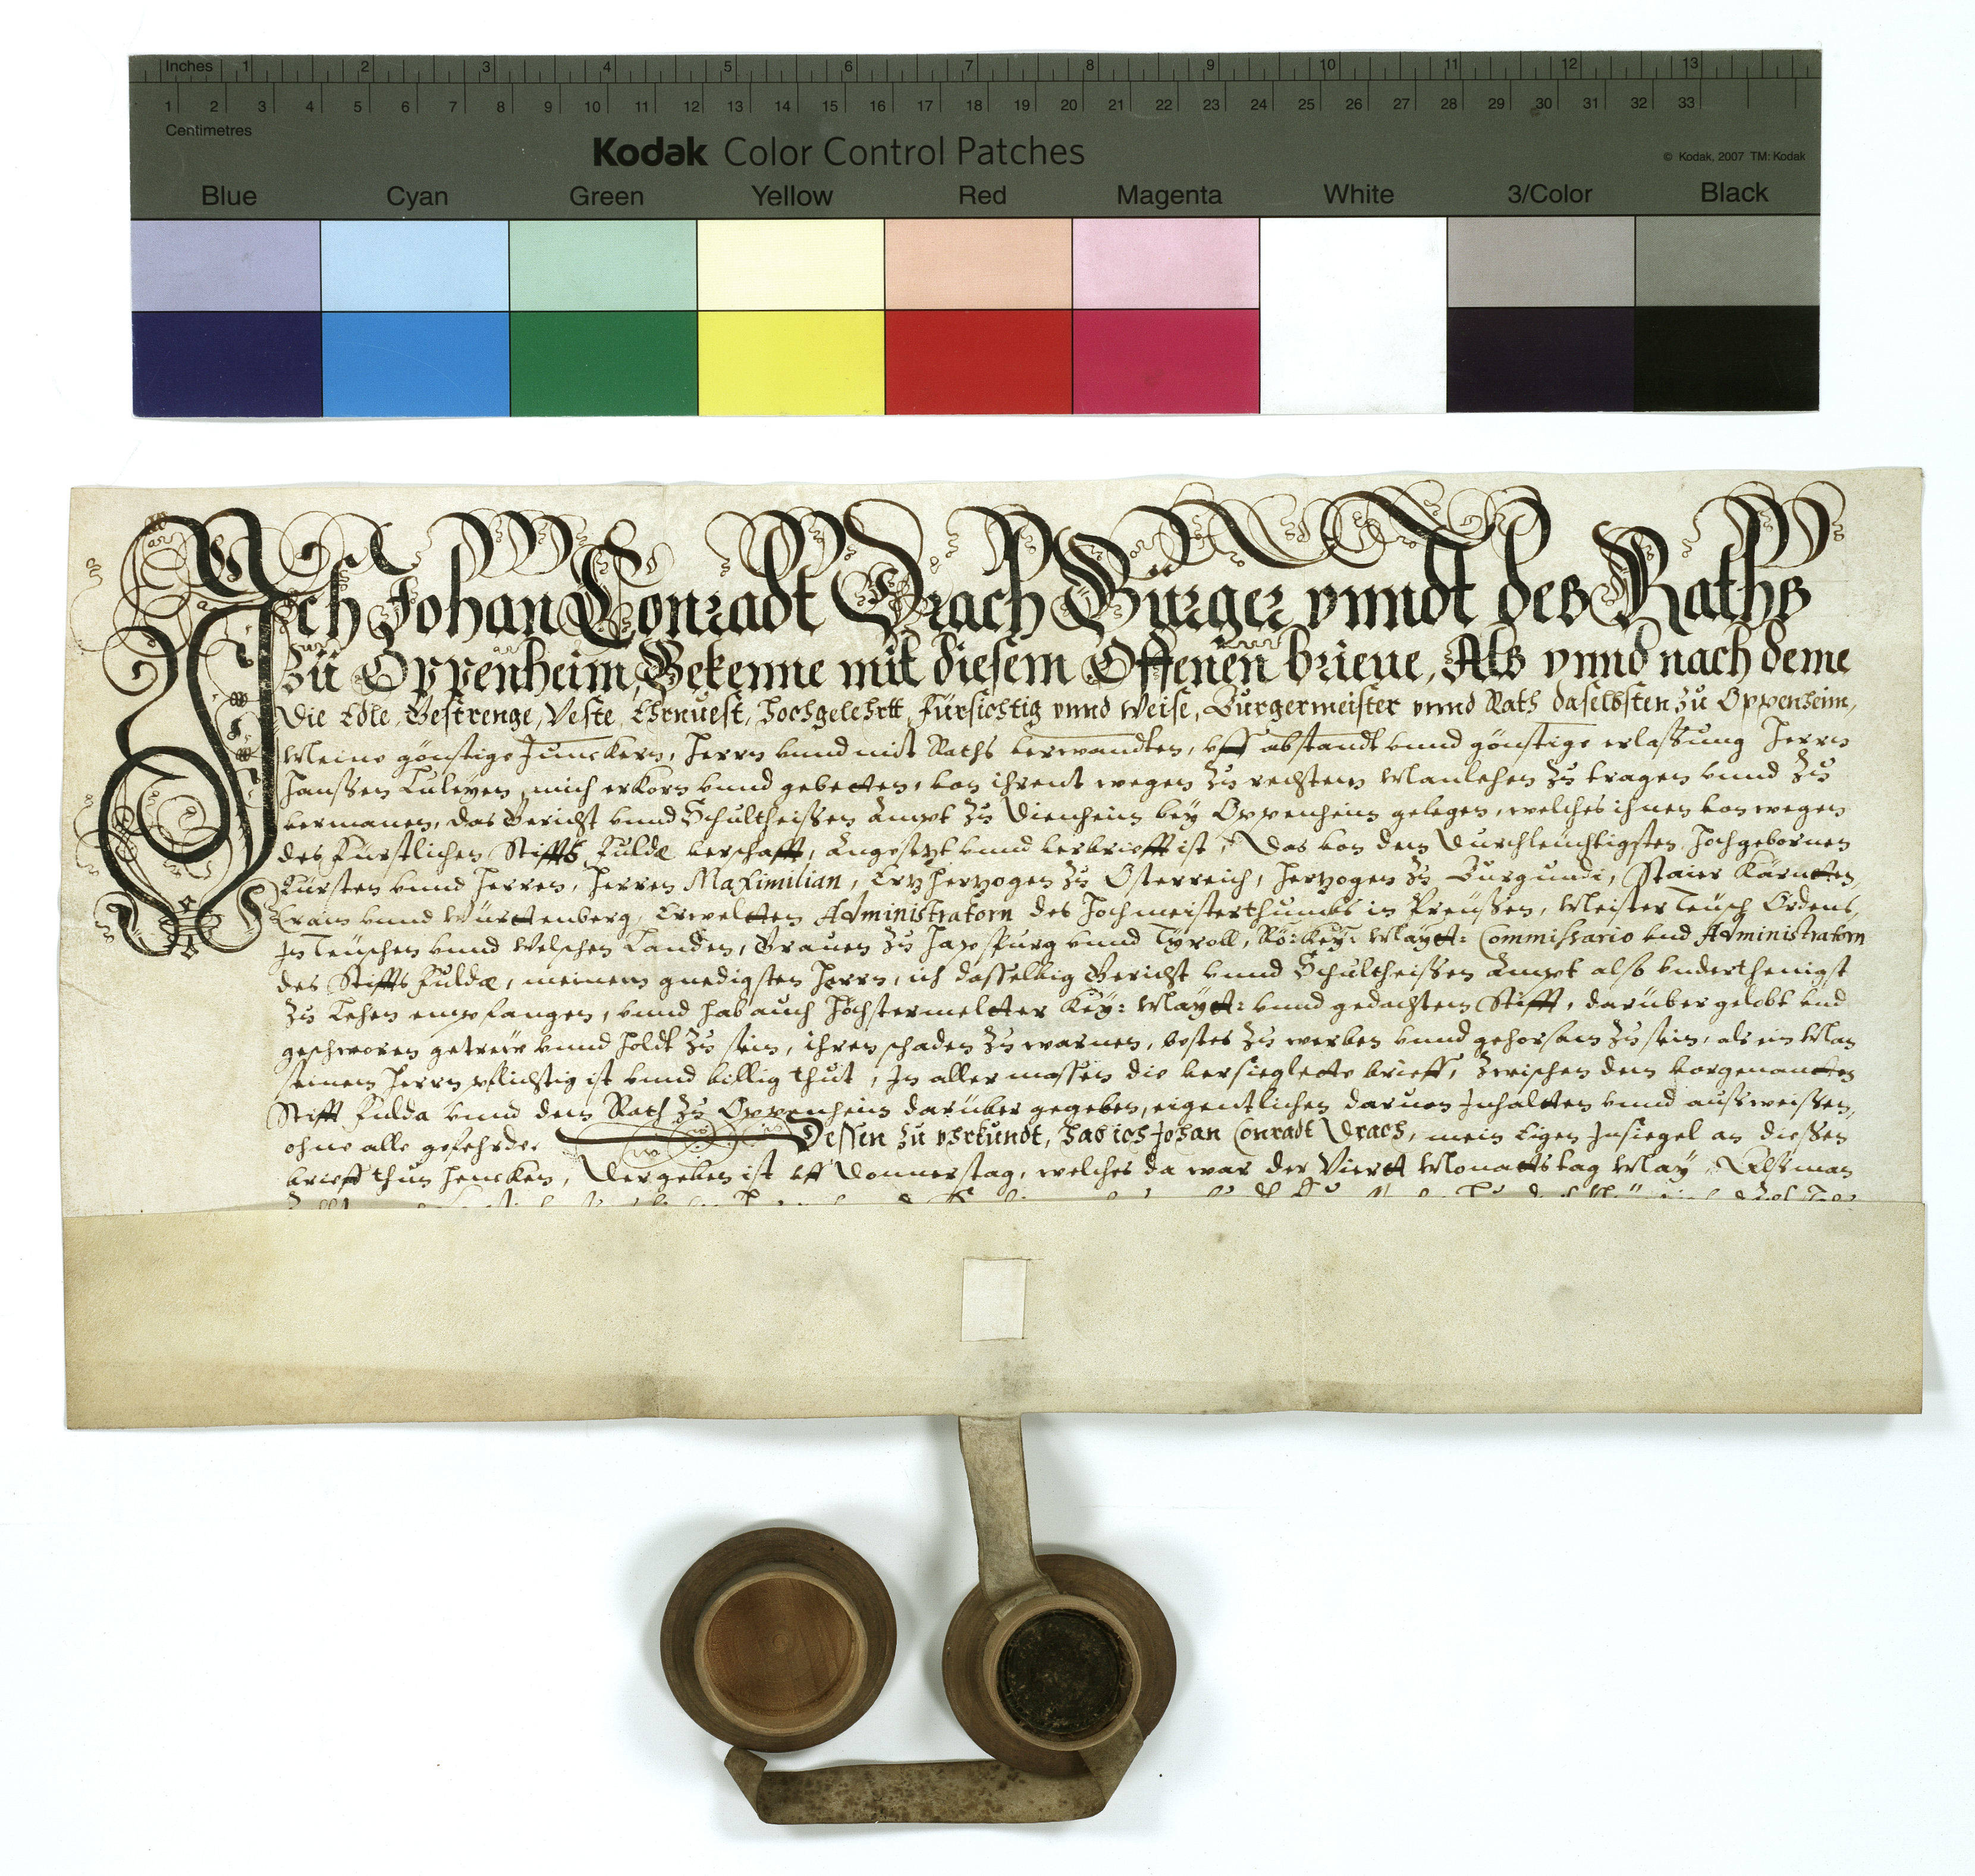 Inches 1 2 3 4 5 6 7 8 9 10 11 12 13
1 2 3 4 5 6 7 8 9 10 11 12 13 14 15 16 17 18 19 20 21 22 23 24 25 26 27 28 29 30 31 32 33
Centimetres
Kodak Color Control Patches
© Kodak, 2007 TM: Kodak
Blue Cyan Green Yellow Red Magenta White 3/Color Black
Ich Johan Conradt Drach Bürger vnndt des Raths
Zu Oppenheim, Bekenne mit diesem Offenen brieue, Als vnnd nach deme
die Edle, Gestrenge, Veste, Ehrnuest, Hochgelehrtt, Fürsichtig vnnd Weise, Burgermeister vnnd Rath daselbsten zu Oppenheim,
Meine gönstige Junckern, Herrn vnnd mitt Raths verwandten, vff abstandt vnnd gönstige erlassung Herrn
Hanssen Luleyen, mich erkorn vnnd gebetten, von ihrent wegen zu rechtem Manlehen zu tragen vnnd zu
vermanen, das Gericht vnnd Schultheissen Ampt zu Dienheim bey Oppenheim gelegen, welches ihnen von wegen
des Fürstlichen Stiffts Fuldæ verschafft, Angesetzt vnnd verbriefft ist, Das von dem Durchleuchtigsten Hochgebornen
Fürsten vnnd Herren, Herren Maximilian, Ertzhertzogen zu Osterreich, Hertzogen zu Burgundi, Staier Kärntten,
Crain vnnd Württenberg, Erweltten Administratorn des Hochmeisterthumbs in Preüssen, Meister Teüsch Ordens,
In Teüschen vnnd Welschen Landen, Grauen zu Hapspurg vnnd Tyroll, Rö: Key: Maytt: Commissario vnd Administratorn
des Stiffts Fuldæ, meinem gnedigsten Herrn, ich dasselbig Gericht vnnd Schultheissen Ampt also vnderthenigst
zu Lehen empfangen, vnnd hab auch Höchstermeltter Key: Maytt: vnnd gedachtem Stifft, darüber gelobt vnd
geschworen getrew vnnd holdt zu sein, ihren schaden zu warnen, bestes zu werben vnnd gehorsam zu sein, als ein Man
seinem Herrn pflichtig ist vnnd billig thut, In aller massen die versiegltte brieff, zwischen dem vorgenantten
Stifft Fulda vnnd dem Rath zu Oppenheim darüber gegeben, eigentlichen daruon Inhaltten vnnd aussweissen,
ohne alle geferhde. Dessen zu vhrkundt, hab ich Johan Conradt Drach, mein Eigen Insiegel an diessen
brieff thun hencken, Der geben ist vff Donnerstag, welches da war der Viertt Monattstag May, Alss man